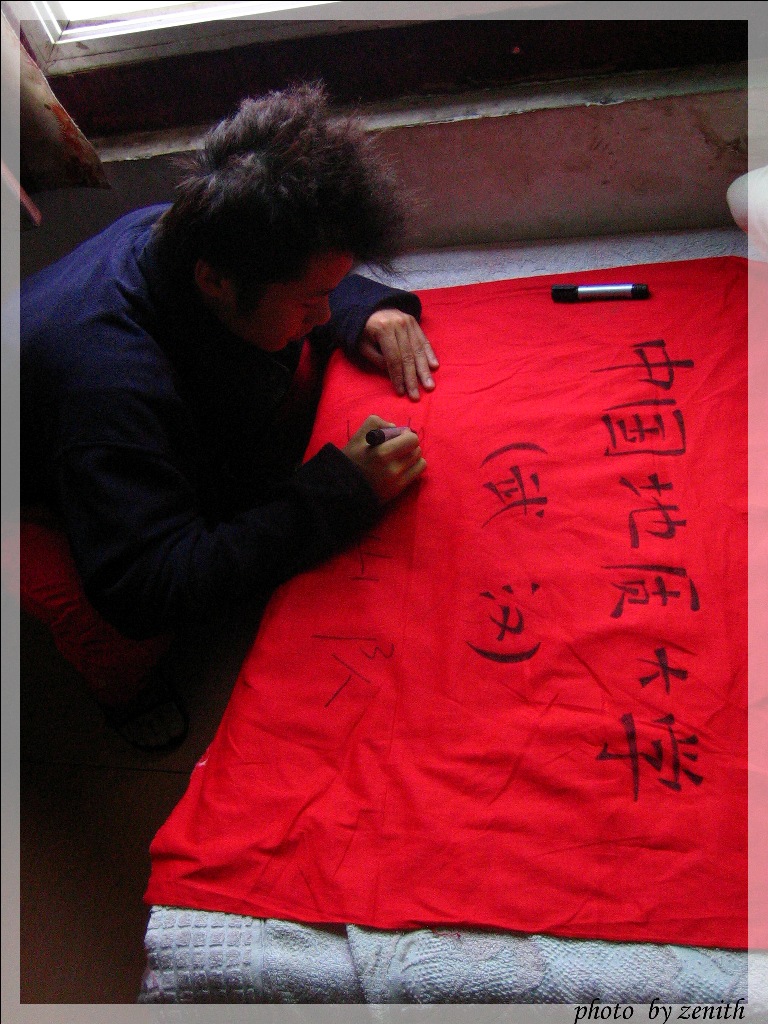 中国地质大学
(武汉)
山队
photo by zenith